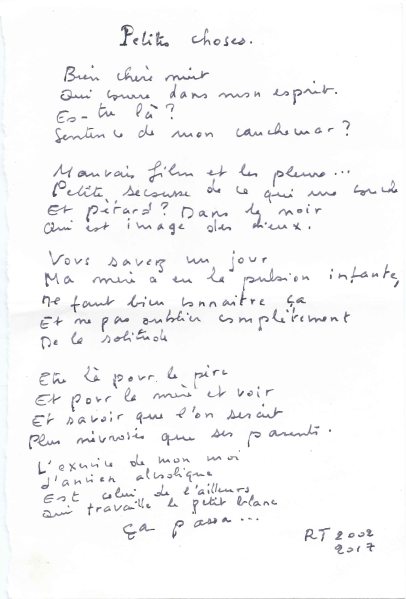 Petites choses.
Bien chère nuit
Qui coure dans mon esprit.
Es-tu là ?
Sentence de mon cauchemar ?
Mauvais film et les pleurs...
Petite secousse de ce qui me
Et pétard ? Dans le noir
Qui est image des dieux.
Vous savez un jour
Ma mère a eu la pulsion infante,
Me faut bien connaître ça
Et ne pas oublier complètement
De la solitude
Etre là pour le père
Et pour la mère et voir
Et savoir que l'on serait
Plus névrosés que ses parents.
L'exercice de mon moi
d'ancien alcoolique
Est celui de l'ailleurs
Qui travaille le petit blanc
ça passa...
RT 2002
2017